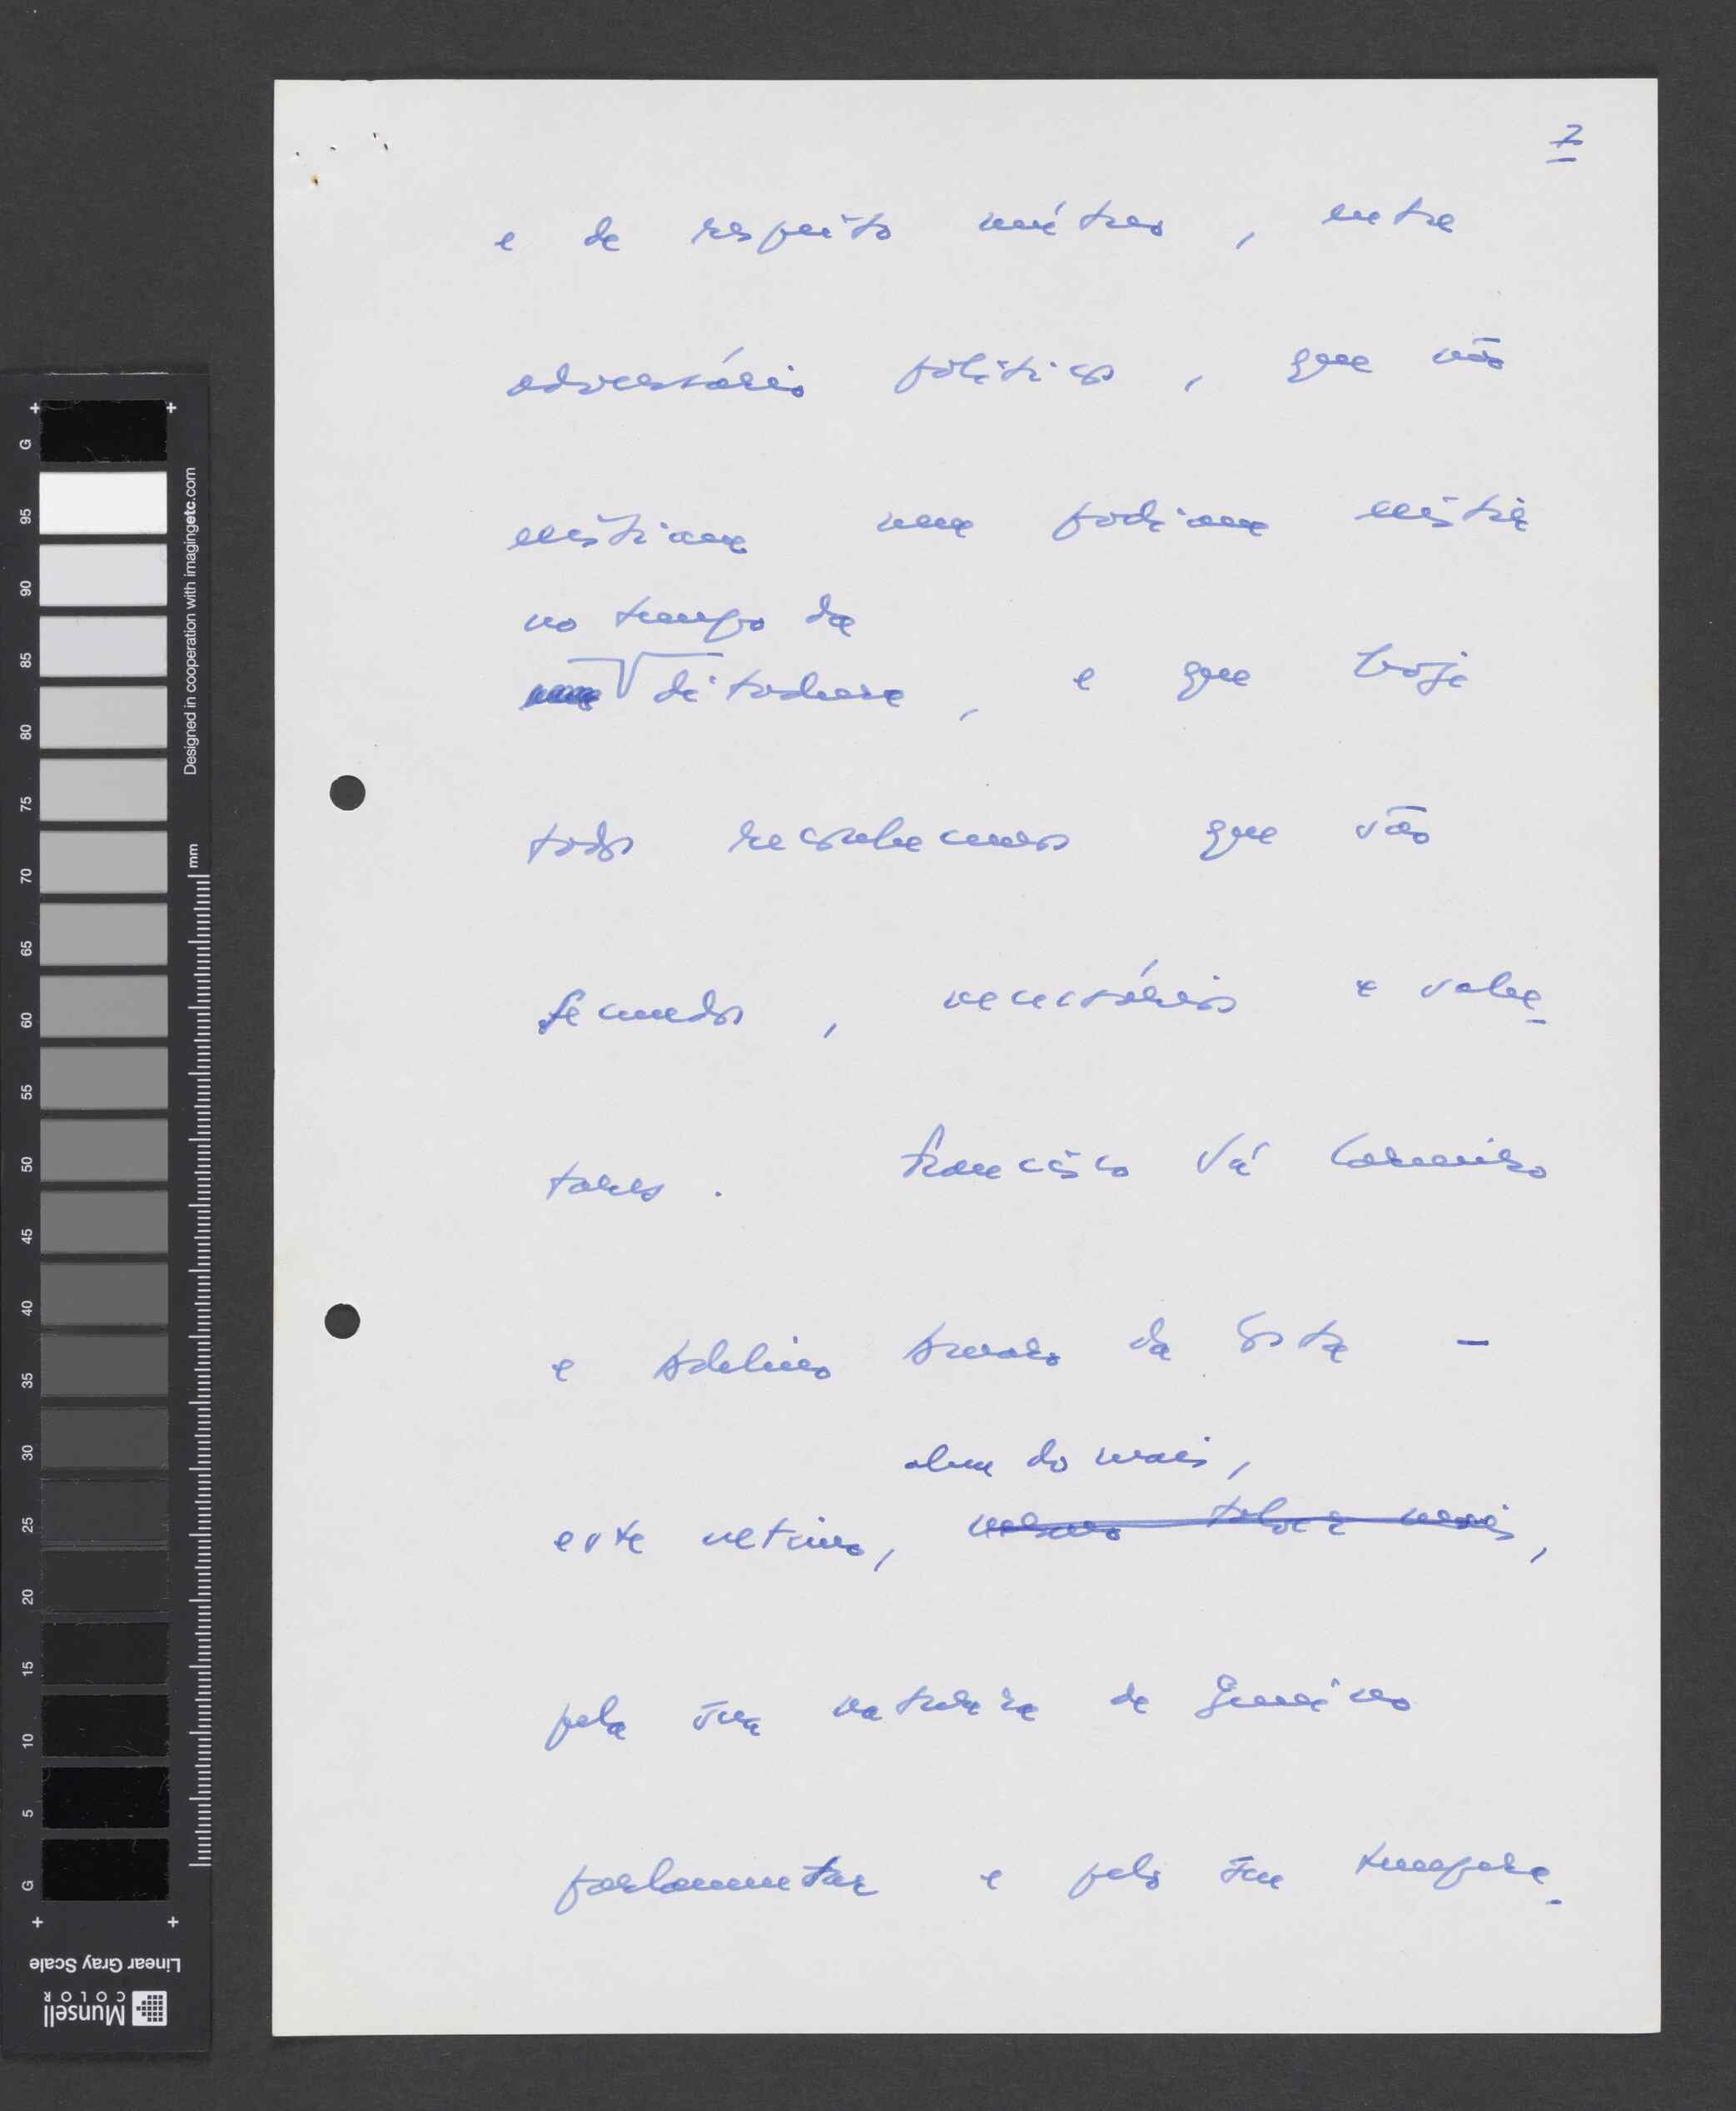 7
e de respeito mútuo, entre
adversários políticos, que não
existiam nem podiam existir
no tempo da
ditadura, e que hoje
todos reconhecemos que são
fecundos, necessários e salu-
tares. Francisco Sá Carneiro
e Adelino Amaro da Costa -
alem do mais,
este ultimo, mesmo talvez mais,
pela sua natureza de genuíno
parlamentar e pelo seu tempera-
G
95
90
85
80
75
70
65
60
55
50
45
40
35
30
25
20
15
10
5
G
mm
Designed in cooperation with imagingetc.com
Linear Gray Scale
Munsell
COLOR